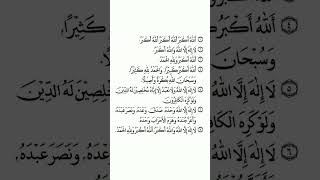 ١ اَللّٰهُ أَكْبَرُ اَللّٰهُ أَكْبَرُ اَللّٰهُ أَكْبَرُ
٢ لَا إِلٰهَ إِلَّا اللّٰهُ وَاللّٰهُ أَكْبَرُ
٣ اَللّٰهُ أَكْبَرُ وَلِلّٰهِ الْحَمْدُ
٤ اَللّٰهُ أَكْبَرُ كَبِيْرًا، وَالْحَمْدُ لِلّٰهِ كَثِيْرًا،
وَسُبْحَانَ اللّٰهِ بُكْرَةً وَأَصِيْلًا،
٥ لَا إِلٰهَ إِلَّا اللّٰهُ وَلَا نَعْبُدُ إِلَّا إِيَّاهُ مُخْلِصِيْنَ لَهُ الدِّيْنَ
وَلَوْ كَرِهَ الْكَافِرُوْنَ
٦ لَا إِلٰهَ إِلَّا اللّٰهُ وَحْدَهُ، صَدَقَ وَعْدَهُ، وَنَصَرَ عَبْدَهُ،
وَأَعَزَّ جُنْدَهُ وَهَزَمَ الْأَحْزَابَ وَحْدَهُ
٧ لَا إِلٰهَ إِلَّا اللّٰهُ وَاللّٰهُ أَكْبَرُ، اَللّٰهُ أَكْبَرُ وَلِلّٰهِ الْحَمْدُ.